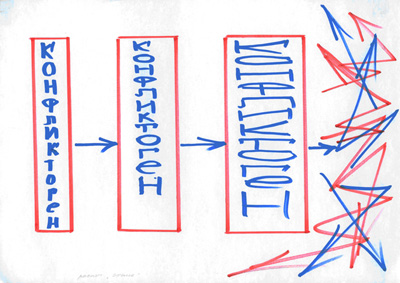 КОНФЛИКТОГЕН
КОНФЛИКТОГЕН
КОНФЛИКТОГЕН